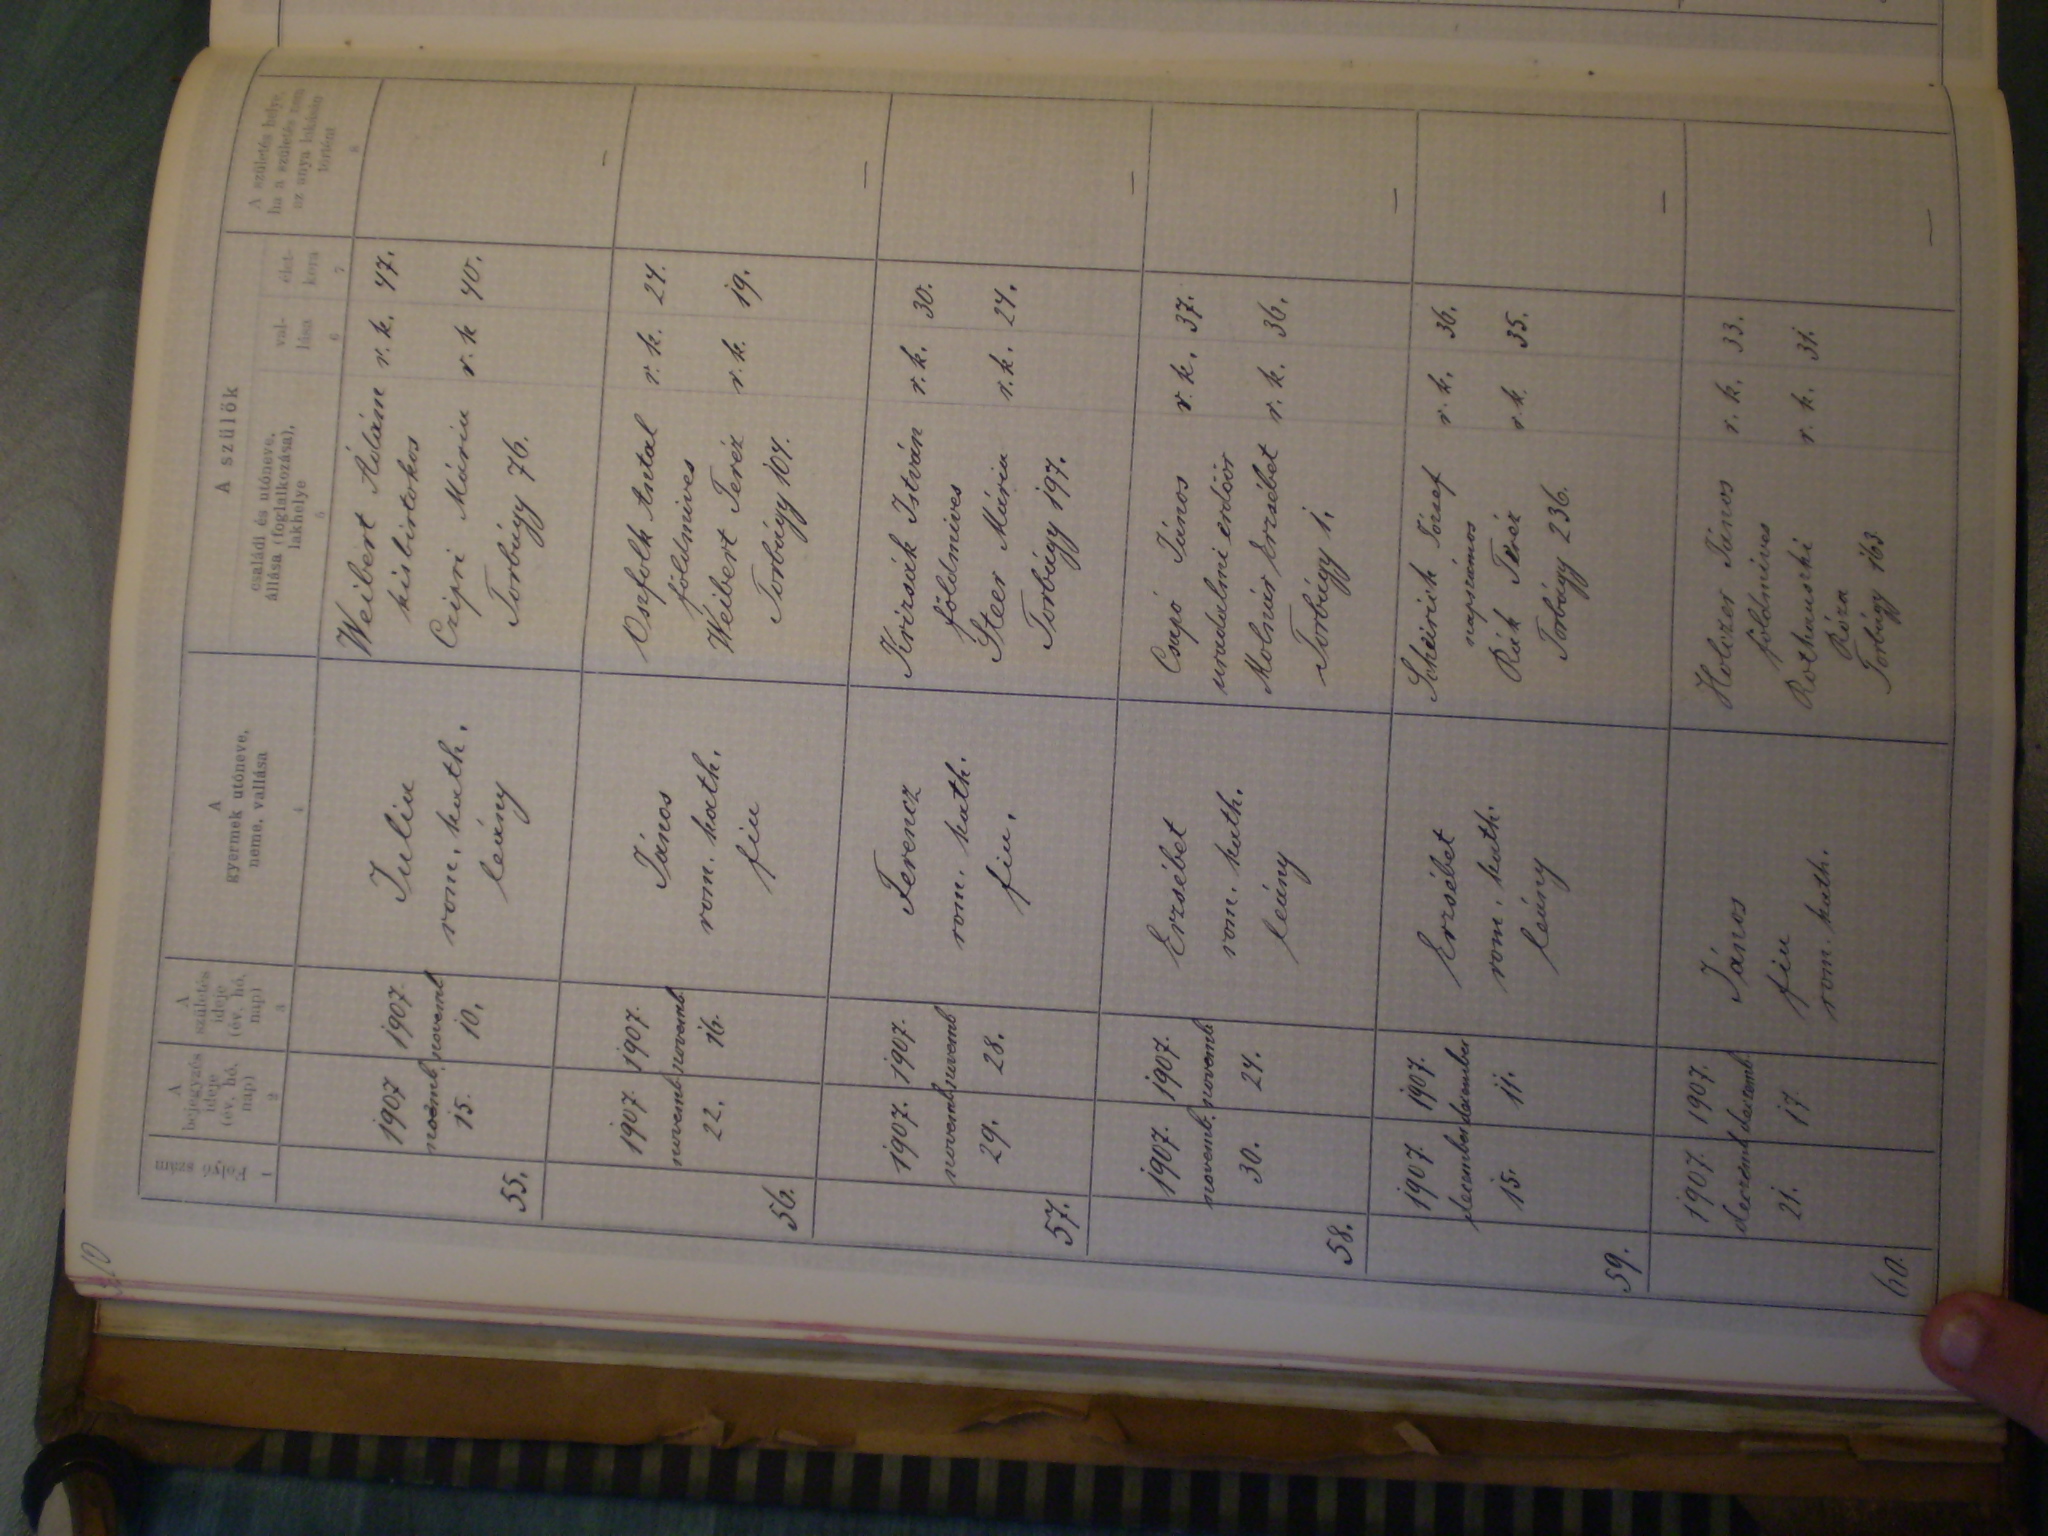 A szülők
Folyó szám
A bejegyzés ideje (év, hó, nap)
A születés ideje (év, hó, nap)
A gyermek utóneve, neme, vallása
családi és utóneve, állása (foglalkozása), lakhelye
val-lása
élet-kora
A születés helye, ha a születés nem az anya lakásán történt
1
2
3
4
5
6
7
8
55.
1907 novemb. 15.
1907. novemb 10.
Julia
rom. kath.
leány
Weibert Ádám r. k. 47.
kisbirtokos
Czipri Mária r. k 40.
Torbágy 76.
—
56.
1907. novemb. 22.
1907. novemb. 16.
János
rom. kath.
fiu
Oszfolk Antal r. k. 24.
földmives
Weibert Teréz r. k. 19.
Torbágy 104.
—
57.
1907. novemb. 29.
1907. novemb 28.
Ferencz
rom. kath.
fiu.
Krizsák István r. k. 30.
földmives
Steer Mária r. k. 24.
Torbágy 197.
—
58.
1907. novemb. 30.
1907. novemb. 24.
Erzsébet
rom. kath.
leány
Csapó János r. k. 37.
uradalmi erdőőr
Molnár Erzsébet r. k. 36.
Torbágy 1.
—
59.
1907. december 15.
1907. december 11.
Erzsébet
rom. kath.
leány
József r. k. 36.
napszámos
Rák Teréz r. k. 35.
Torbágy 236.
—
60.
1907. decemb 21.
1907. decemb. 17.
János
fiu
rom. kath.
Holczer János r. k. 33.
földmives
Róza r. k. 31.
Torbágy 163
—